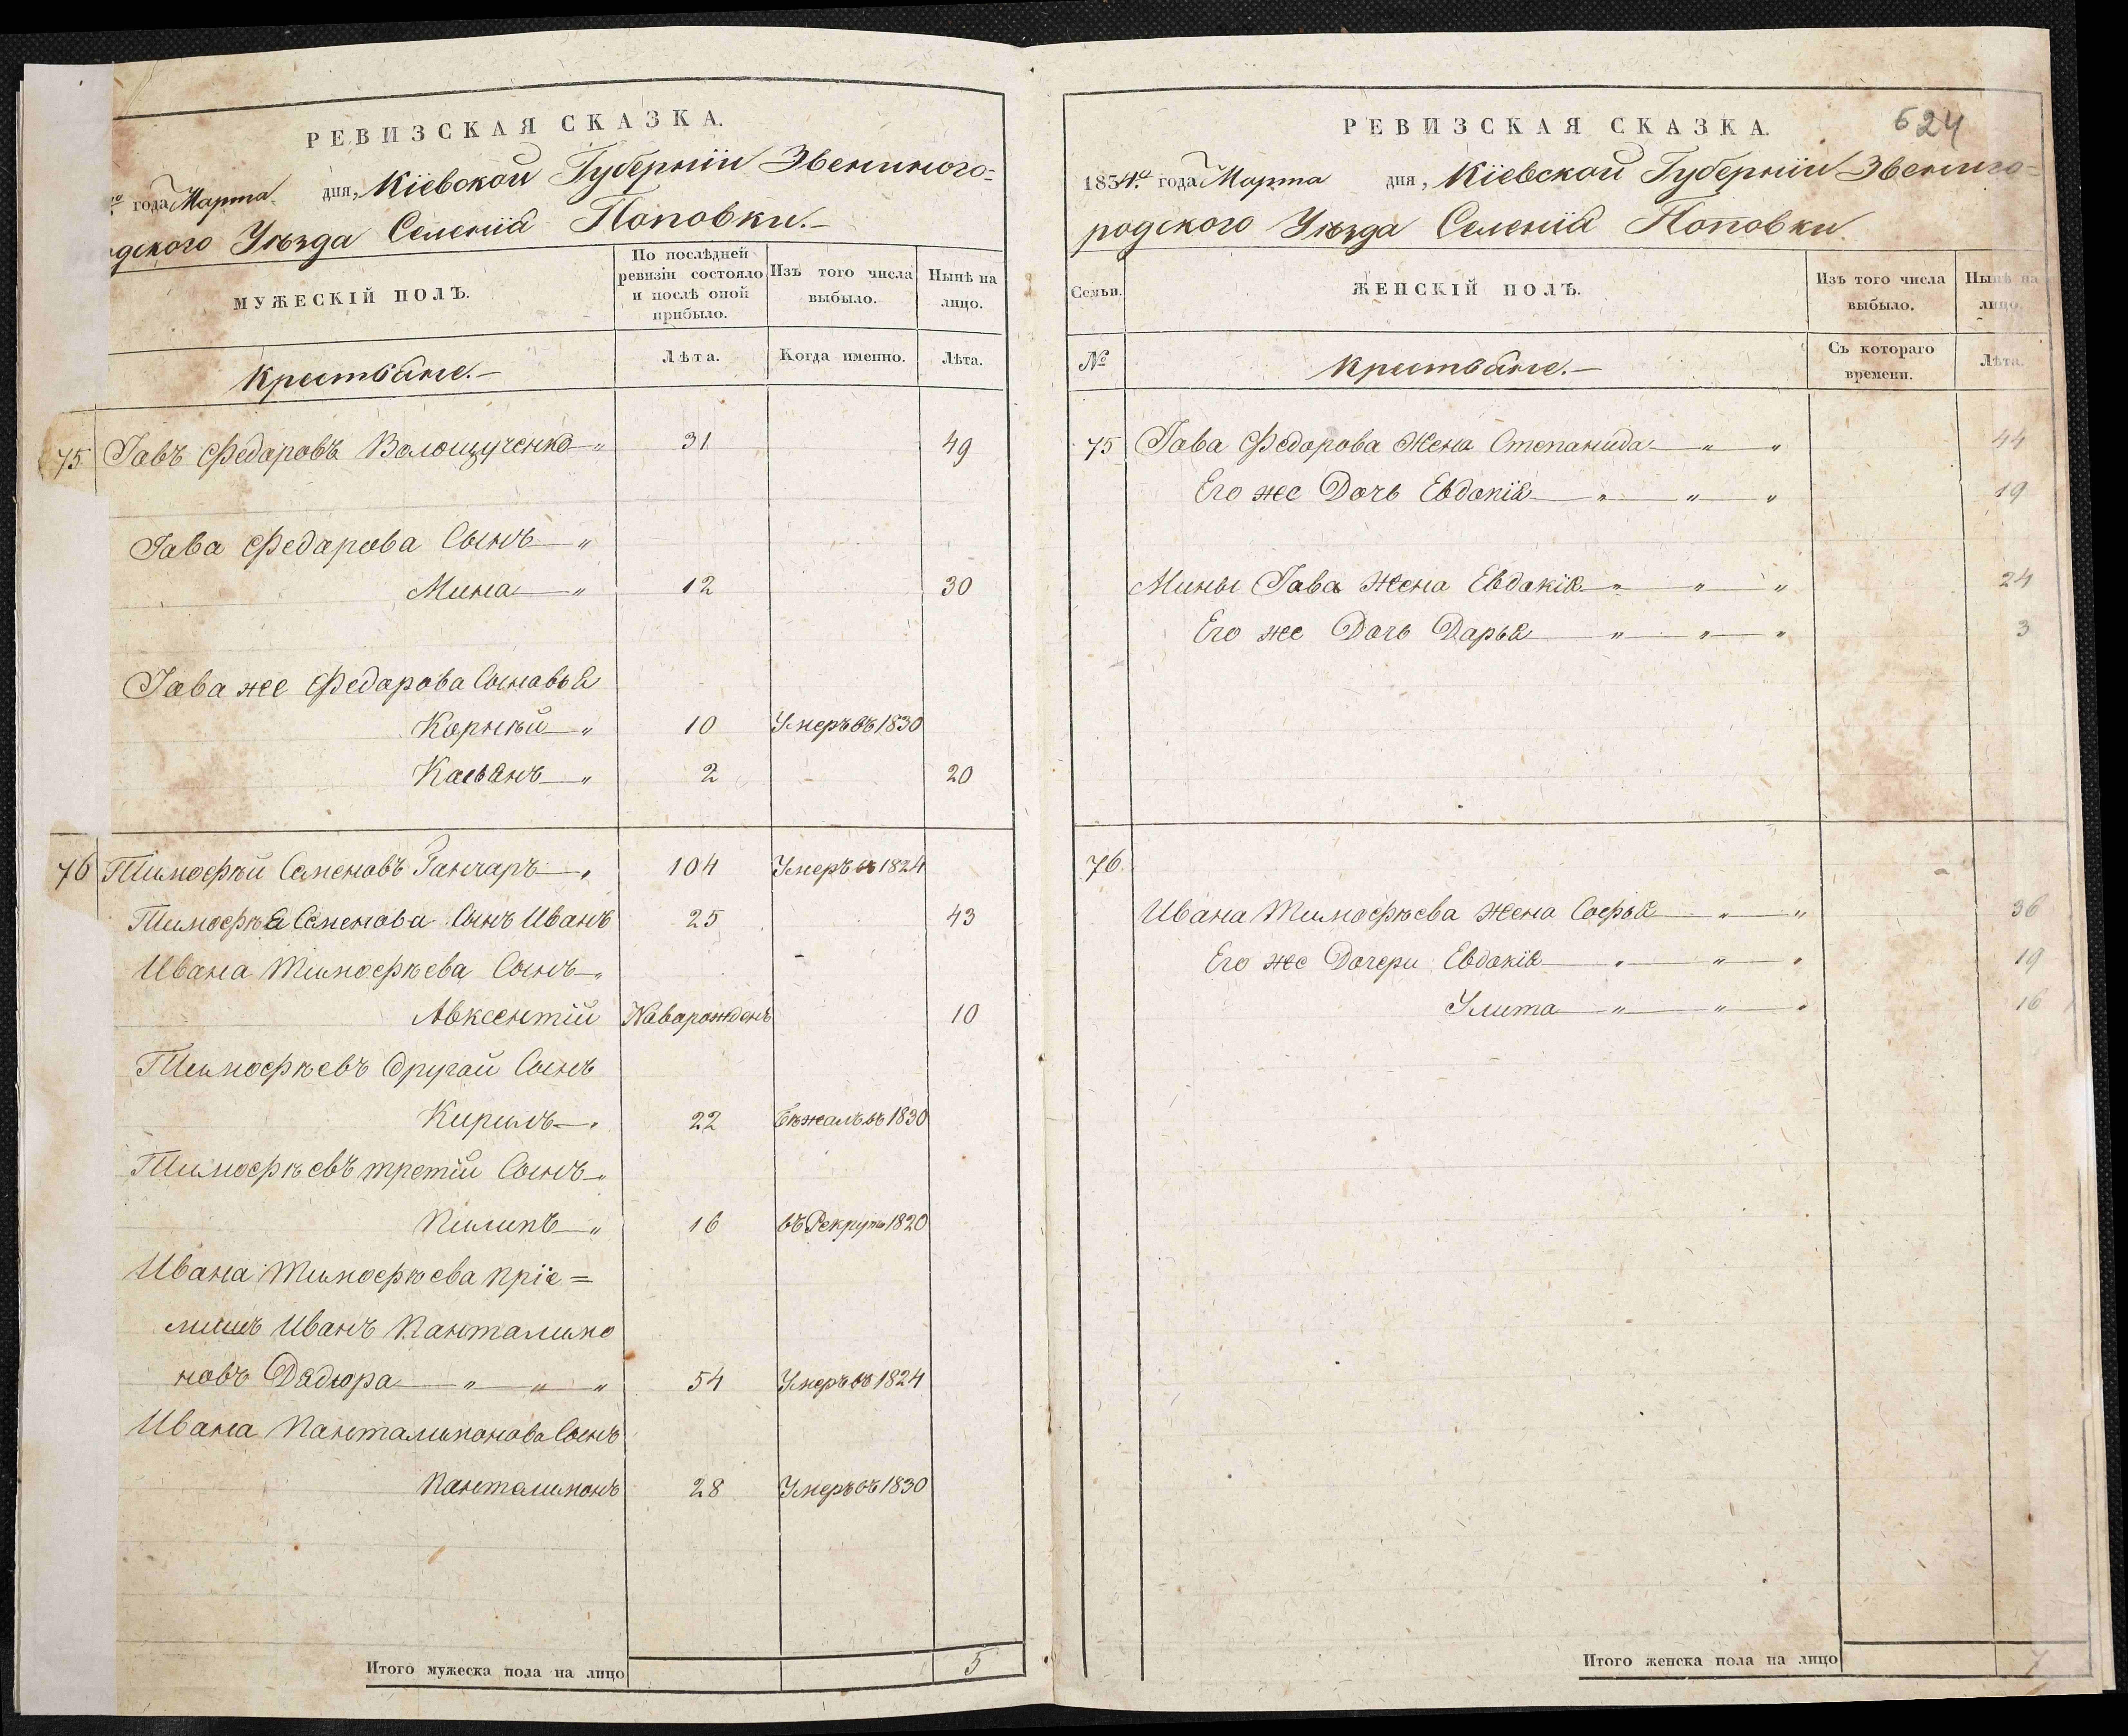 РЕВИЗСКАЯ СКАЗКА.
года Марта дня, Кіевской Губерніи Звениного=
родского Уѣзда Селенія Поповки.—
МУЖЕСКІЙ ПОЛЪ.
По послѣдней ревизіи состояло и послѣ оной прибыло.
Изъ того числа выбыло.
Нынѣ на лицо.
Крестьяне.—
Лѣта.
Когда именно.
Лѣта.
75 Іовъ Федоровъ Волощученко „ 31 49
Іова Федорова Сынъ „
Мина „ 12 30
Іова же Федорова Сыновья
Корнѣй „ 10 Умеръ въ 1830
Касьянъ „ 2 20
76 Тимофѣй Семеновъ Ганчаръ „ 104 Умеръ въ 1824
Тимофѣя Семенова Сынъ Иванъ 25 43
Ивана Тимофѣева Сынъ „
Авксентій Новорожденъ 10
Тимофѣевъ другой Сынъ
Кирилъ „ 22 Бѣжалъ въ 1830
Тимофѣевъ третій Сынъ „
Пилипъ „ 16 въ Рекруты 1820
Ивана Тимофѣева пріе=
мышъ Иванъ Панталимо
новъ Дядюра „ „ „ 54 Умеръ въ 1824
Ивана Панталимонова Сынъ
Панталимонъ 28 Умеръ въ 1830
Итого мужеска пола на лицо 5
РЕВИЗСКАЯ СКАЗКА.
624
1834го года Марта дня, Кіевской Губерніи Звениго=
родского Уѣзда Селенія Поповки.
Семьи.
ЖЕНСКІЙ ПОЛЪ.
Изъ того числа выбыло.
Нынѣ на лицо.
№
Крестьяне.—
Съ котораго времени.
Лѣта.
75 Іова Федорова Жена Степанида „ „ 44
Его же Дочь Евдокія „ „ „ 19
Мины Іова Жена Евдокія „ „ „ 24
Его же Дочь Дарья „ „ „ 3
76.
Ивана Тимофѣева Жена Софья „ „ 36
Его же Дочери Евдокія „ „ „ 19
Улита „ „ „ 16
Итого женска пола на лицо 7